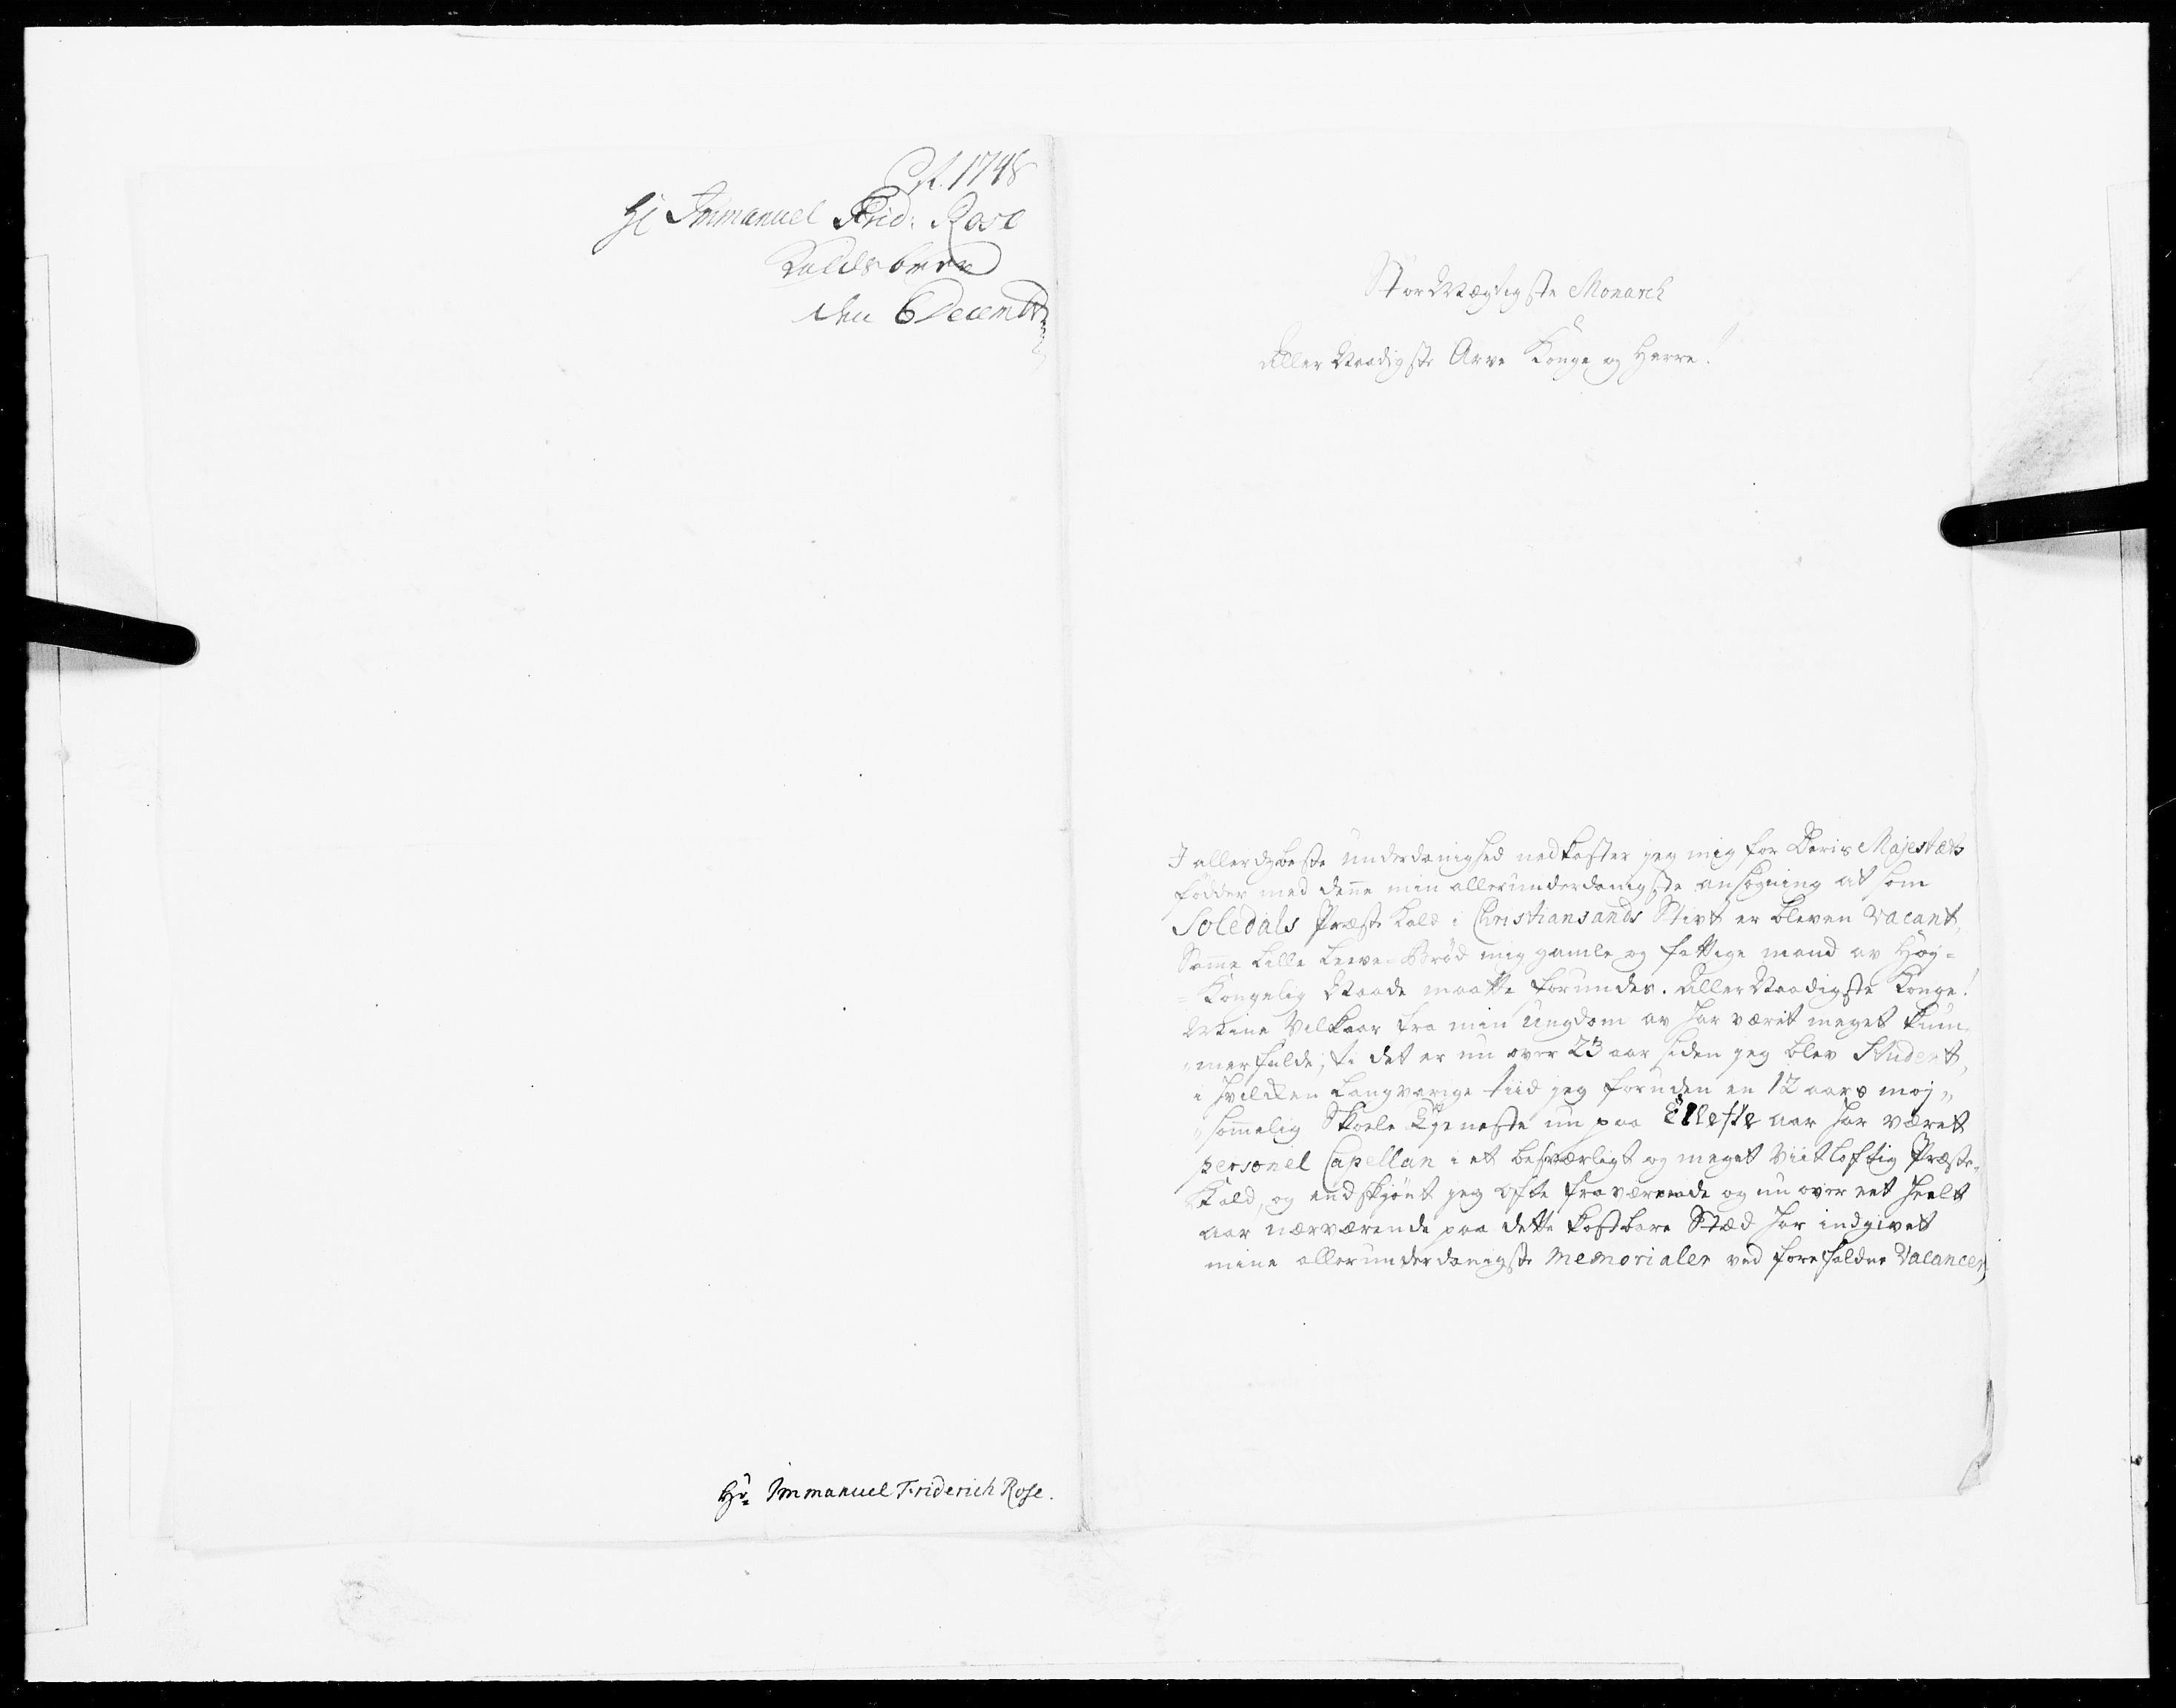 1748
Hr Immanuel Frid: Rose
Kaldsbrev
den 6 Decembr
Hr. Immanuel Friderich Rose.
StorMægtigste Monarch
Aller Naadigste Arve Konge og Herre!
I allerdybeste underdanighed nedkaster jeg mig for Deris Majestæts
födder med denne min allerunderdanigste ansøgning at som
Soledals Præste Kald i Christiansands Stivt er bleven Vacant,
Samme lille Levve-Brød mig gamle og fattige mand av Høj-
=Kongelig Naade maatte forundes. AllerNaadigste Konge!
Mine Vilkaar fra min Ungdom av har værit meget kum-
merfulde; ti det er nu over 23 aar siden jeg blev Student,
i hvilken langvarige tiid jeg foruden en 12 aars moj-
sommelig Skole Tjeneste nu paa Ellefte aar har været
personel Capellan i et besværligt og meget Viitløftig Præste-
Kald, og endskjönt jeg ofte fraværende og nu over eet heelt
aar nærværende paa dette kostbare Stæd har indgivet
mine allerunderdanigste Memorialer ved forefaldne Vacancer,